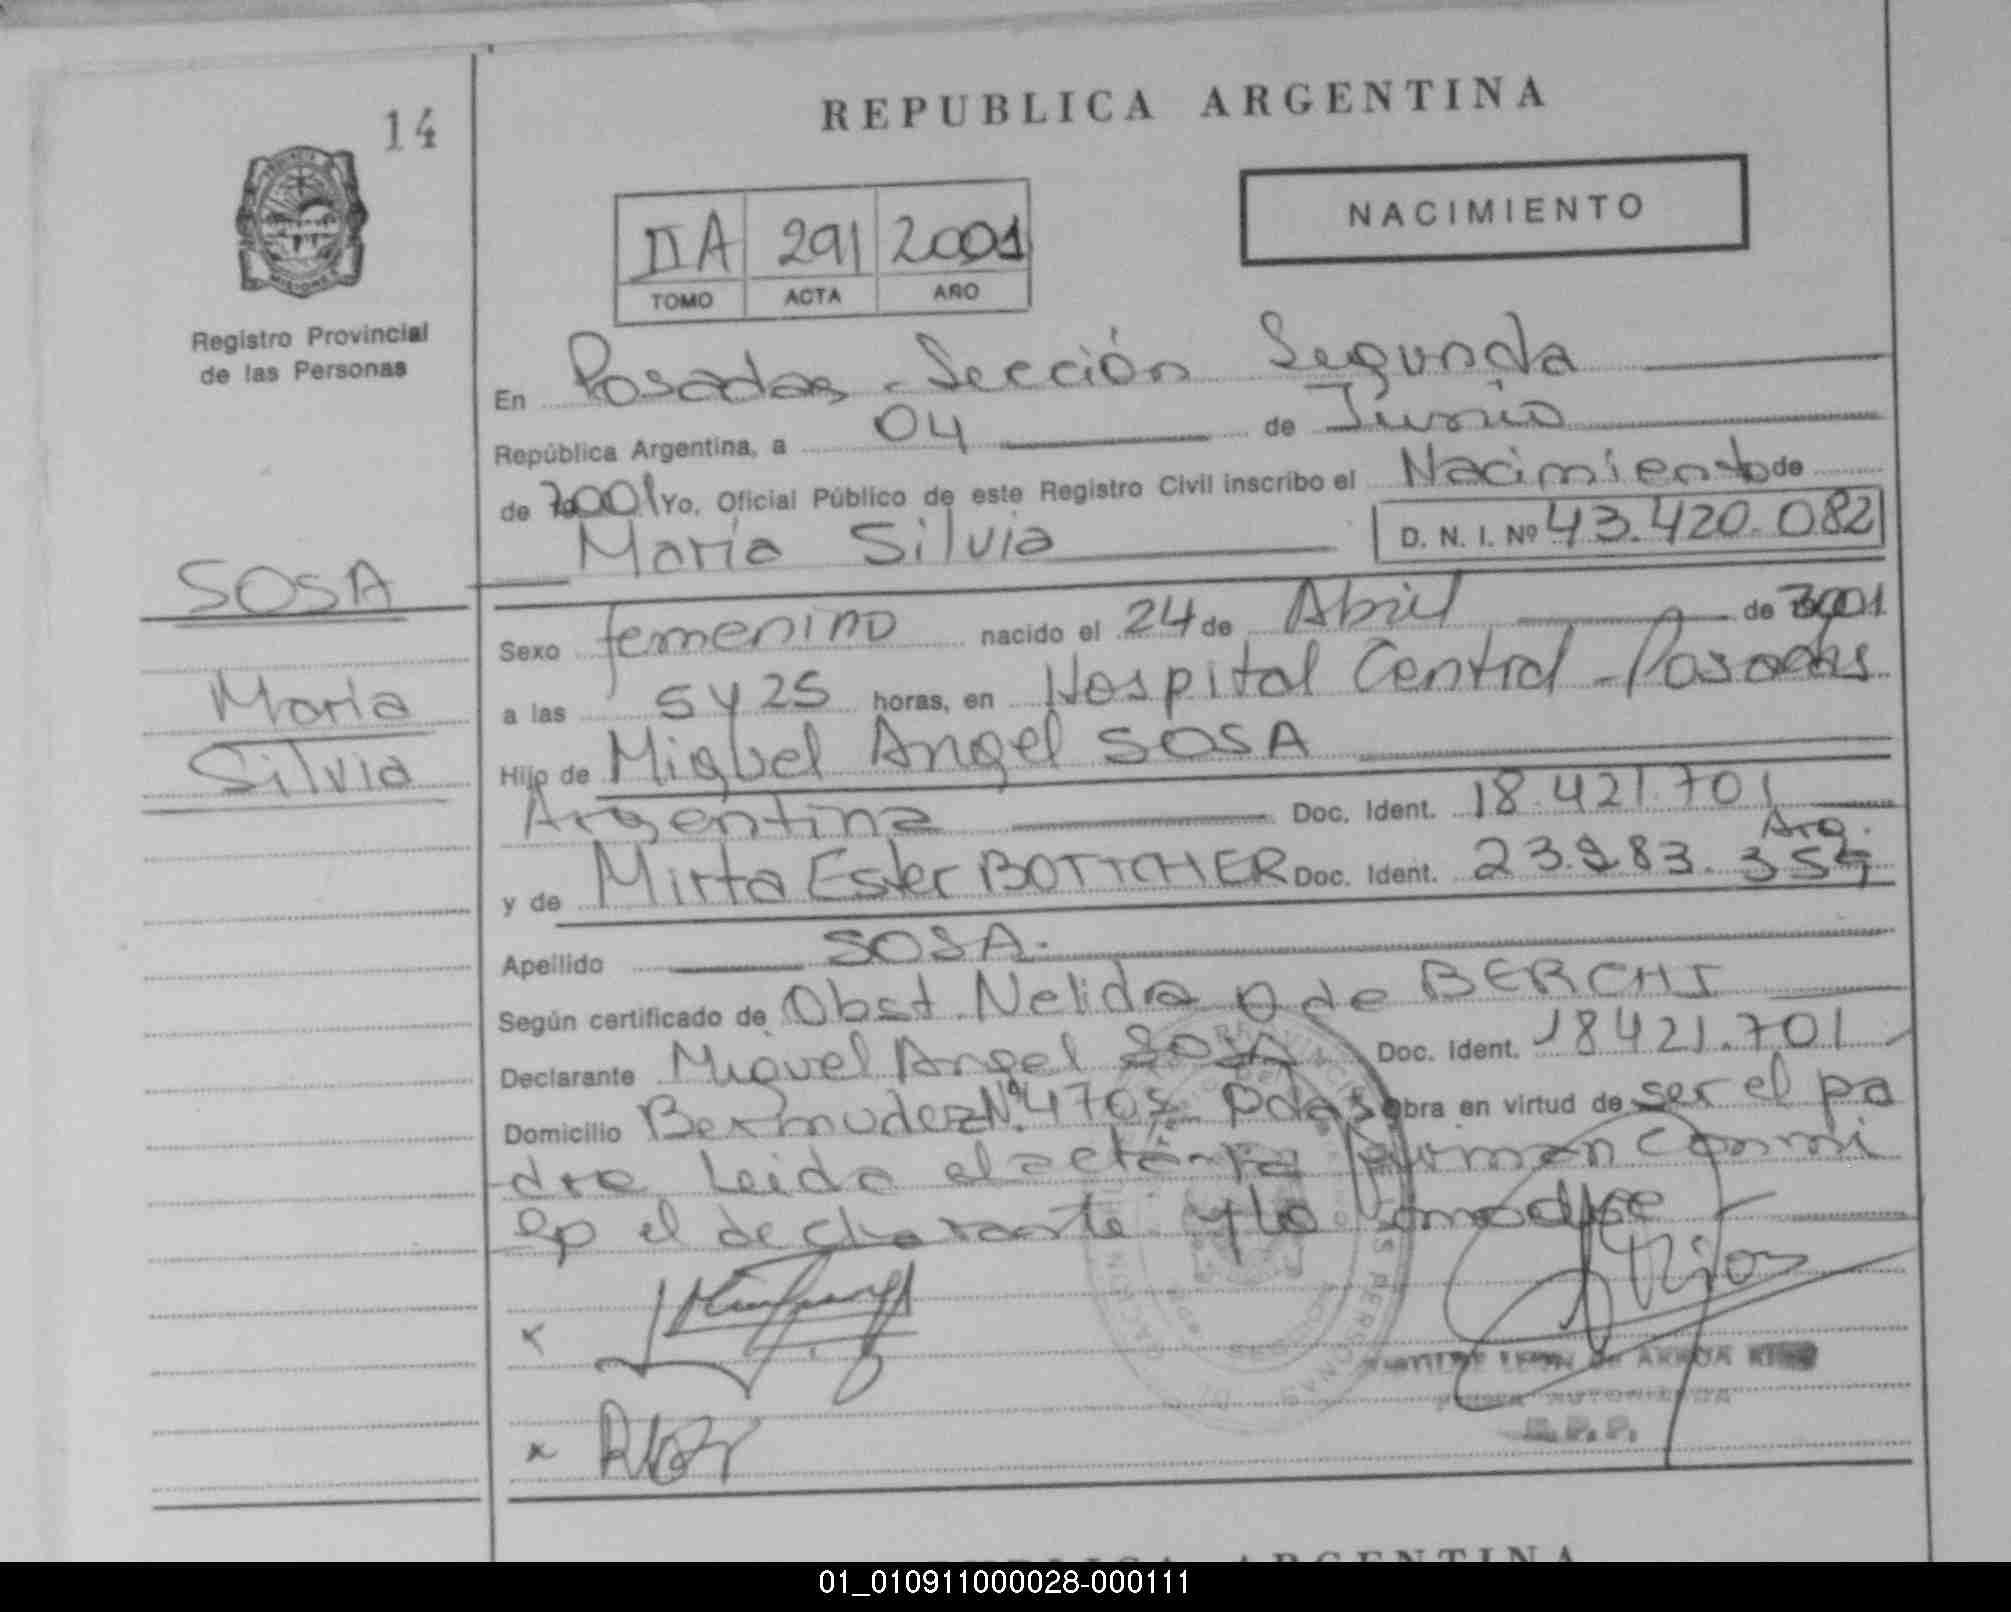 14
REPUBLICA ARGENTINA
NACIMIENTO
II A 291 2001
TOMO ACTA AÑO
Registro Provincial
de las Personas
En Posadas - Sección Segunda
República Argentina, a 04 de Junio
de 2001 Yo, Oficial Público de este Registro Civil inscribo el Nacimiento de
María Silvia D. N. I. Nº 43.420.082
SOSA
María
Silvia
Sexo femenino nacido el 24 de Abril de 2001
a las 5 y 25 horas, en Hospital Central - Posadas
Hijo de Miguel Angel SOSA
Argentina Doc. Ident. 18.421.701
Arg.
y de Mirta Ester BOTTCHER Doc. Ident. 23.983.354
Apellido SOSA.
Según certificado de Obst. Nelida O de BERCHI
Declarante Miguel Angel SOSA Doc. Ident. 18421.701
Domicilio Bermudez Nº 4705 Pdas Obra en virtud de ser el pa
dre Leida el acta firman conmi
go el declarante y la madre
x
x
R.P.P.
REPUBLICA ARGENTINA
01_010911000028-000111